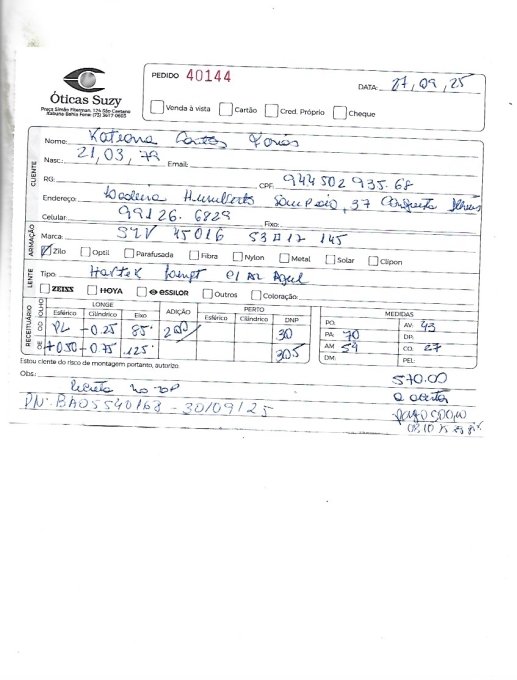 Óticas Suzy
Praça Simão Fiterman, 124 São Caetano
Itabuna Bahia Fone: (73) 3617-0605
PEDIDO 40144
DATA: 27, 09, 25
Venda à vista Cartão Cred. Próprio Cheque
CLIENTE
Nome: Katiana
Nasc.: 21, 03, 79 Email:
RG: CPF: 944502935.68
Endereço: Ladeira Humberto Sampaio, 37 Conquista Ilhéus
Celular: 99126.6829 Fixo:
ARMAÇÃO
Marca: SZV 45016 53 17 145
Zilo Optil Parafusada Fibra Nylon Metal Solar Clipon
LENTE
Tipo: p/ AR Azul
ZEISS HOYA essilor Outros Coloração:
RECEITUÁRIO
LONGE ADIÇÃO PERTO DNP MEDIDAS
Esférico Cilíndrico Eixo Esférico Cilíndrico
OD PL -0.25 85° 200 30
OE +0.50 -0.75 125° 305
OLHO
PO: AV: 43
PA: 70 DP:
AM: 54 CO: 27
DM: PEL:
Estou ciente do risco de montagem portanto, autorizo
570.00
Obs.: Receita no
PN: BA05540168 - 30/09/25